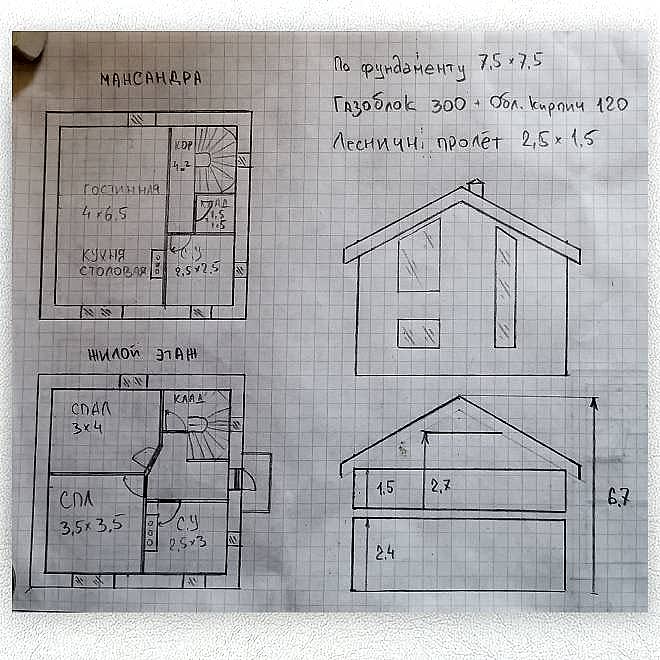 МАНСАНДРА
По фундаменту 7,5×7,5
Газоблок 300 + Обл. Кирпич 120
Лесничні пролёт 2,5×1.5
КОР
4м²
ГОСТИННАЯ
4×6,5
КЛАД
1,5
1,5
КУХНЯ
СТОЛОВАЯ
С.У
2,5×2.5
ЖИЛОЙ ЭТАЖ
СПАЛ
3×4
КЛАД
СПЛ
3,5×3,5
С.У
2,5×3
1,5
2,7
2.4
6,7